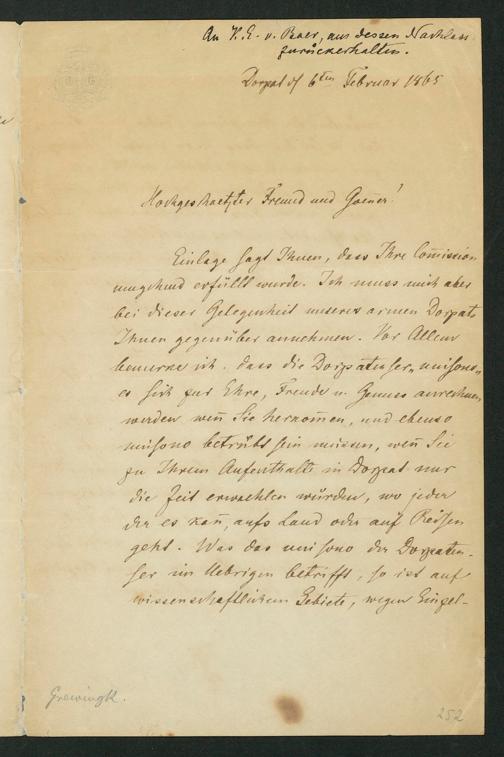 An K. E. v. Baer, aus dessen Nachlass
zurückerhalten.
Dorpat d 6ten Februar 1865
Hochgeschaetzter Freund und Goeñer!
Einlage sagt Ihnen, dass Ihre Com̅ission
umgehend erfüllt wurde. Ich muss mich aber
bei dieser Gelegenheit unseres armen Dorpats
Ihnen gegenüber annehmen. Vor Allem
bemerke ich, dass die Dorpatenser „unisono„
es sich zur Ehre, Freude u. Genuss anrechnen
werden weñ Sie herkom̅en, und ebenso
unisono betrübt sein müssen, weñ Sie
zu Ihrem Aufenthalte in Dorpat nur
die Zeit erwaehlen würden, wo jeder
der es kañ, aufs Land oder auf Reisen
geht. Was das unisono der Dorpaten-
ser im Uebrigen betrifft, so ist auf
wissenschaftlichem Gebiete, wegen Einzel-
Grewingk.
252